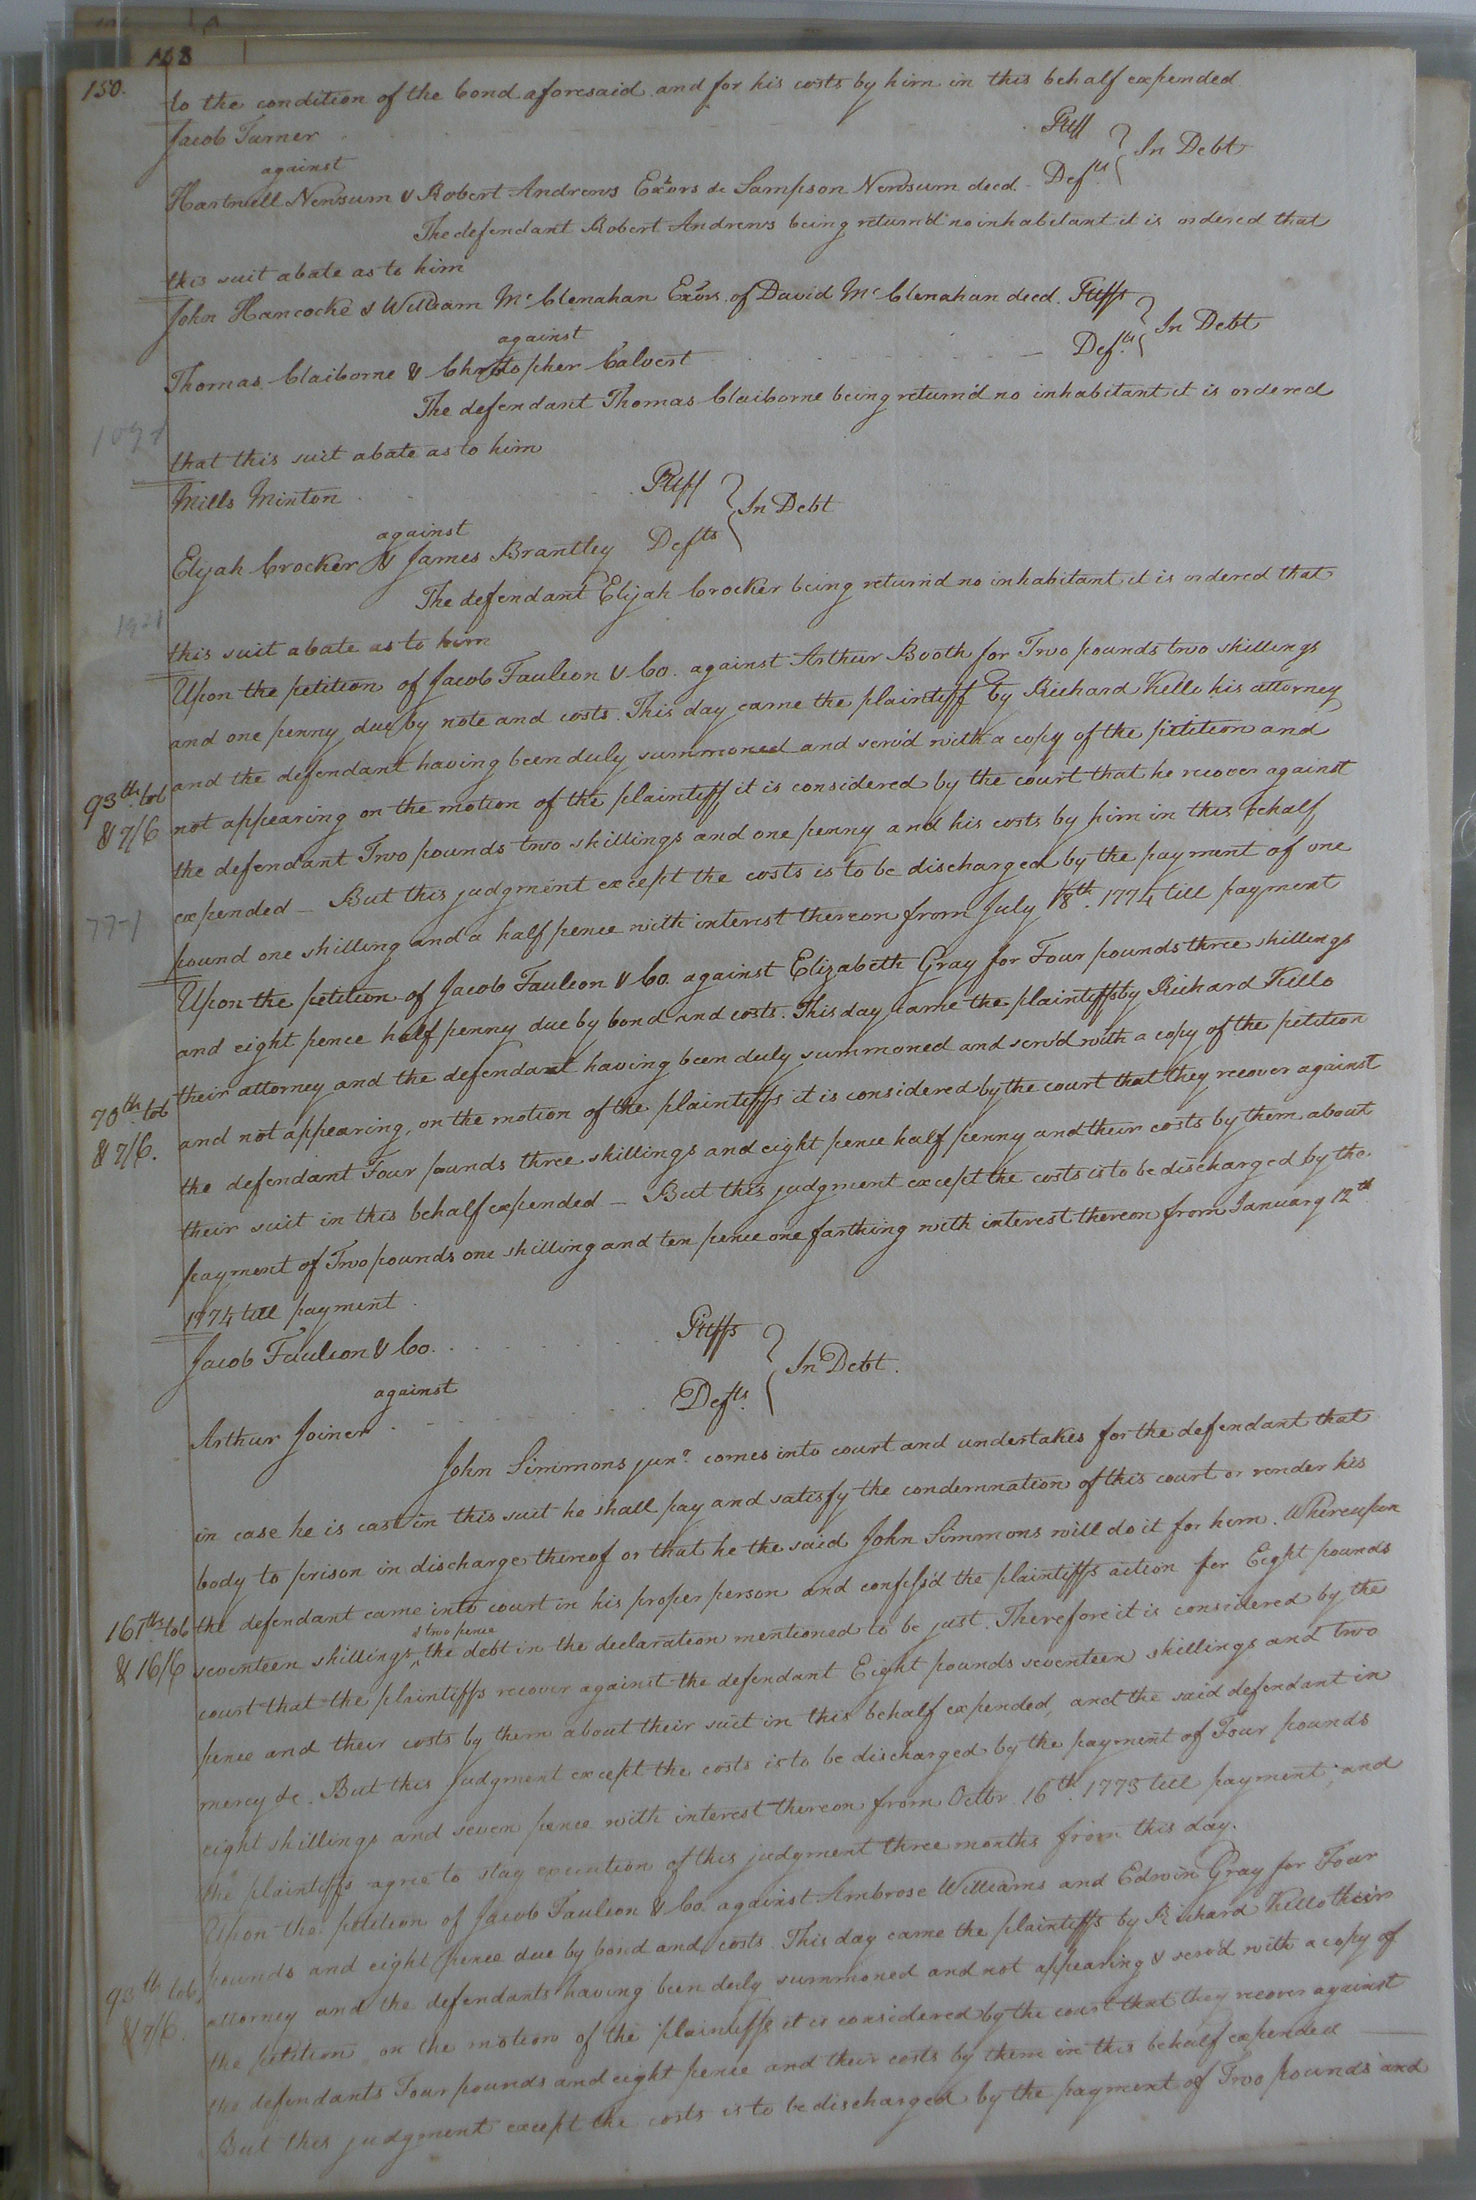 168
150.
to the condition of the bond aforesaid and for his costs by him in this behalf expended
Jacob Turner Pltff
against In Debt
Hartwell Newsum & Robert Andrews Exors &c Sampson Newsum decd. Defts
The defendant Robert Andrews being return'd no inhabitant it is ordered that
this suit abate as to him
John Hancocke & William McClenahan Exors. of David McClenahan decd. Pltffs
against In Debt
Thomas Claiborne & Christopher Calvert Defts
The defendant Thomas Claiborne being return'd no inhabitant it is ordered
that this suit abate as to him
Mills Minton Pltff
against In Debt
Elijah Crocker & James Brantley Defts
The defendant Elijah Crocker being return'd no inhabitant it is ordered that
this suit abate as to him
Upon the petition of Jacob Faulcon & Co. against Arthur Booth for Two pounds two shillings
and one penny due by note and costs. This day came the plaintiff by Richard Kello his attorney
and the defendant having been duly summoned and serv'd with a copy of the petition and
93th. tob
& 7/6
not appearing on the motion of the plaintiff it is considered by the court that he recover against
the defendant Two pounds two shillings and one penny and his costs by him in this behalf
expended — But this judgment except the costs is to be discharged by the payment of one
pound one shilling and a half pence with interest thereon from July 18th. 1774 till payment
Upon the petition of Jacob Faulcon & Co. against Elizabeth Gray for Four pounds three shillings
and eight pence half penny due by bond and costs. This day came the plaintiffs by Richard Kello
their attorney and the defendant having been duly summoned and serv'd with a copy of the petition
70th. tob
& 7/6.
and not appearing, on the motion of the plaintiffs it is considered by the court that they recover against
the defendant Four pounds three shillings and eight pence half penny and their costs by them about
their suit in this behalf expended — But this judgment except the costs is to be discharged by the
payment of Two pounds one shilling and ten pence one farthing with interest thereon from January 12th
1774 till payment
Jacob Faulcon & Co. Pltffs
against In Debt.
Arthur Joiner Defts.
John Simmons junr. comes into court and undertakes for the defendant that
in case he is cast in this suit he shall pay and satisfy the condemnation of this court or render his
body to prison in discharge thereof or that he the said John Simmons will do it for him. Whereupon
161th. tob
& 16/6
the defendant came into court in his proper person and confess'd the plaintiffs action for Eight pounds
& two pence
seventeen shillings ^ the debt in the declaration mentioned to be just. Therefore it is considered by the
court that the plaintiffs recover against the defendant Eight pounds seventeen shillings and two
pence and their costs by them about their suit in this behalf expended, and the said defendant in
mercy &c. But this judgment except the costs is to be discharged by the payment of Four pounds
eight shillings and seven pence with interest thereon from Octbr. 16th. 1773 till payment; and
the plaintiffs agree to stay execution of this judgment three months from this day.
Upon the petition of Jacob Faulcon & Co. against Ambrose Williams and Edwin Gray for Four
pounds and eight pence due by bond and costs. This day came the plaintiffs by Richard Kello their
93th tob.
& 7/6.
attorney and the defendants having been duly summoned and not appearing & serv'd with a copy of
the petition on the motion of the plaintiffs it is considered by the court that they recover against
the defendants Four pounds and eight pence and their costs by them in this behalf expended —
But this judgment except the costs is to be discharged by the payment of Two pounds and